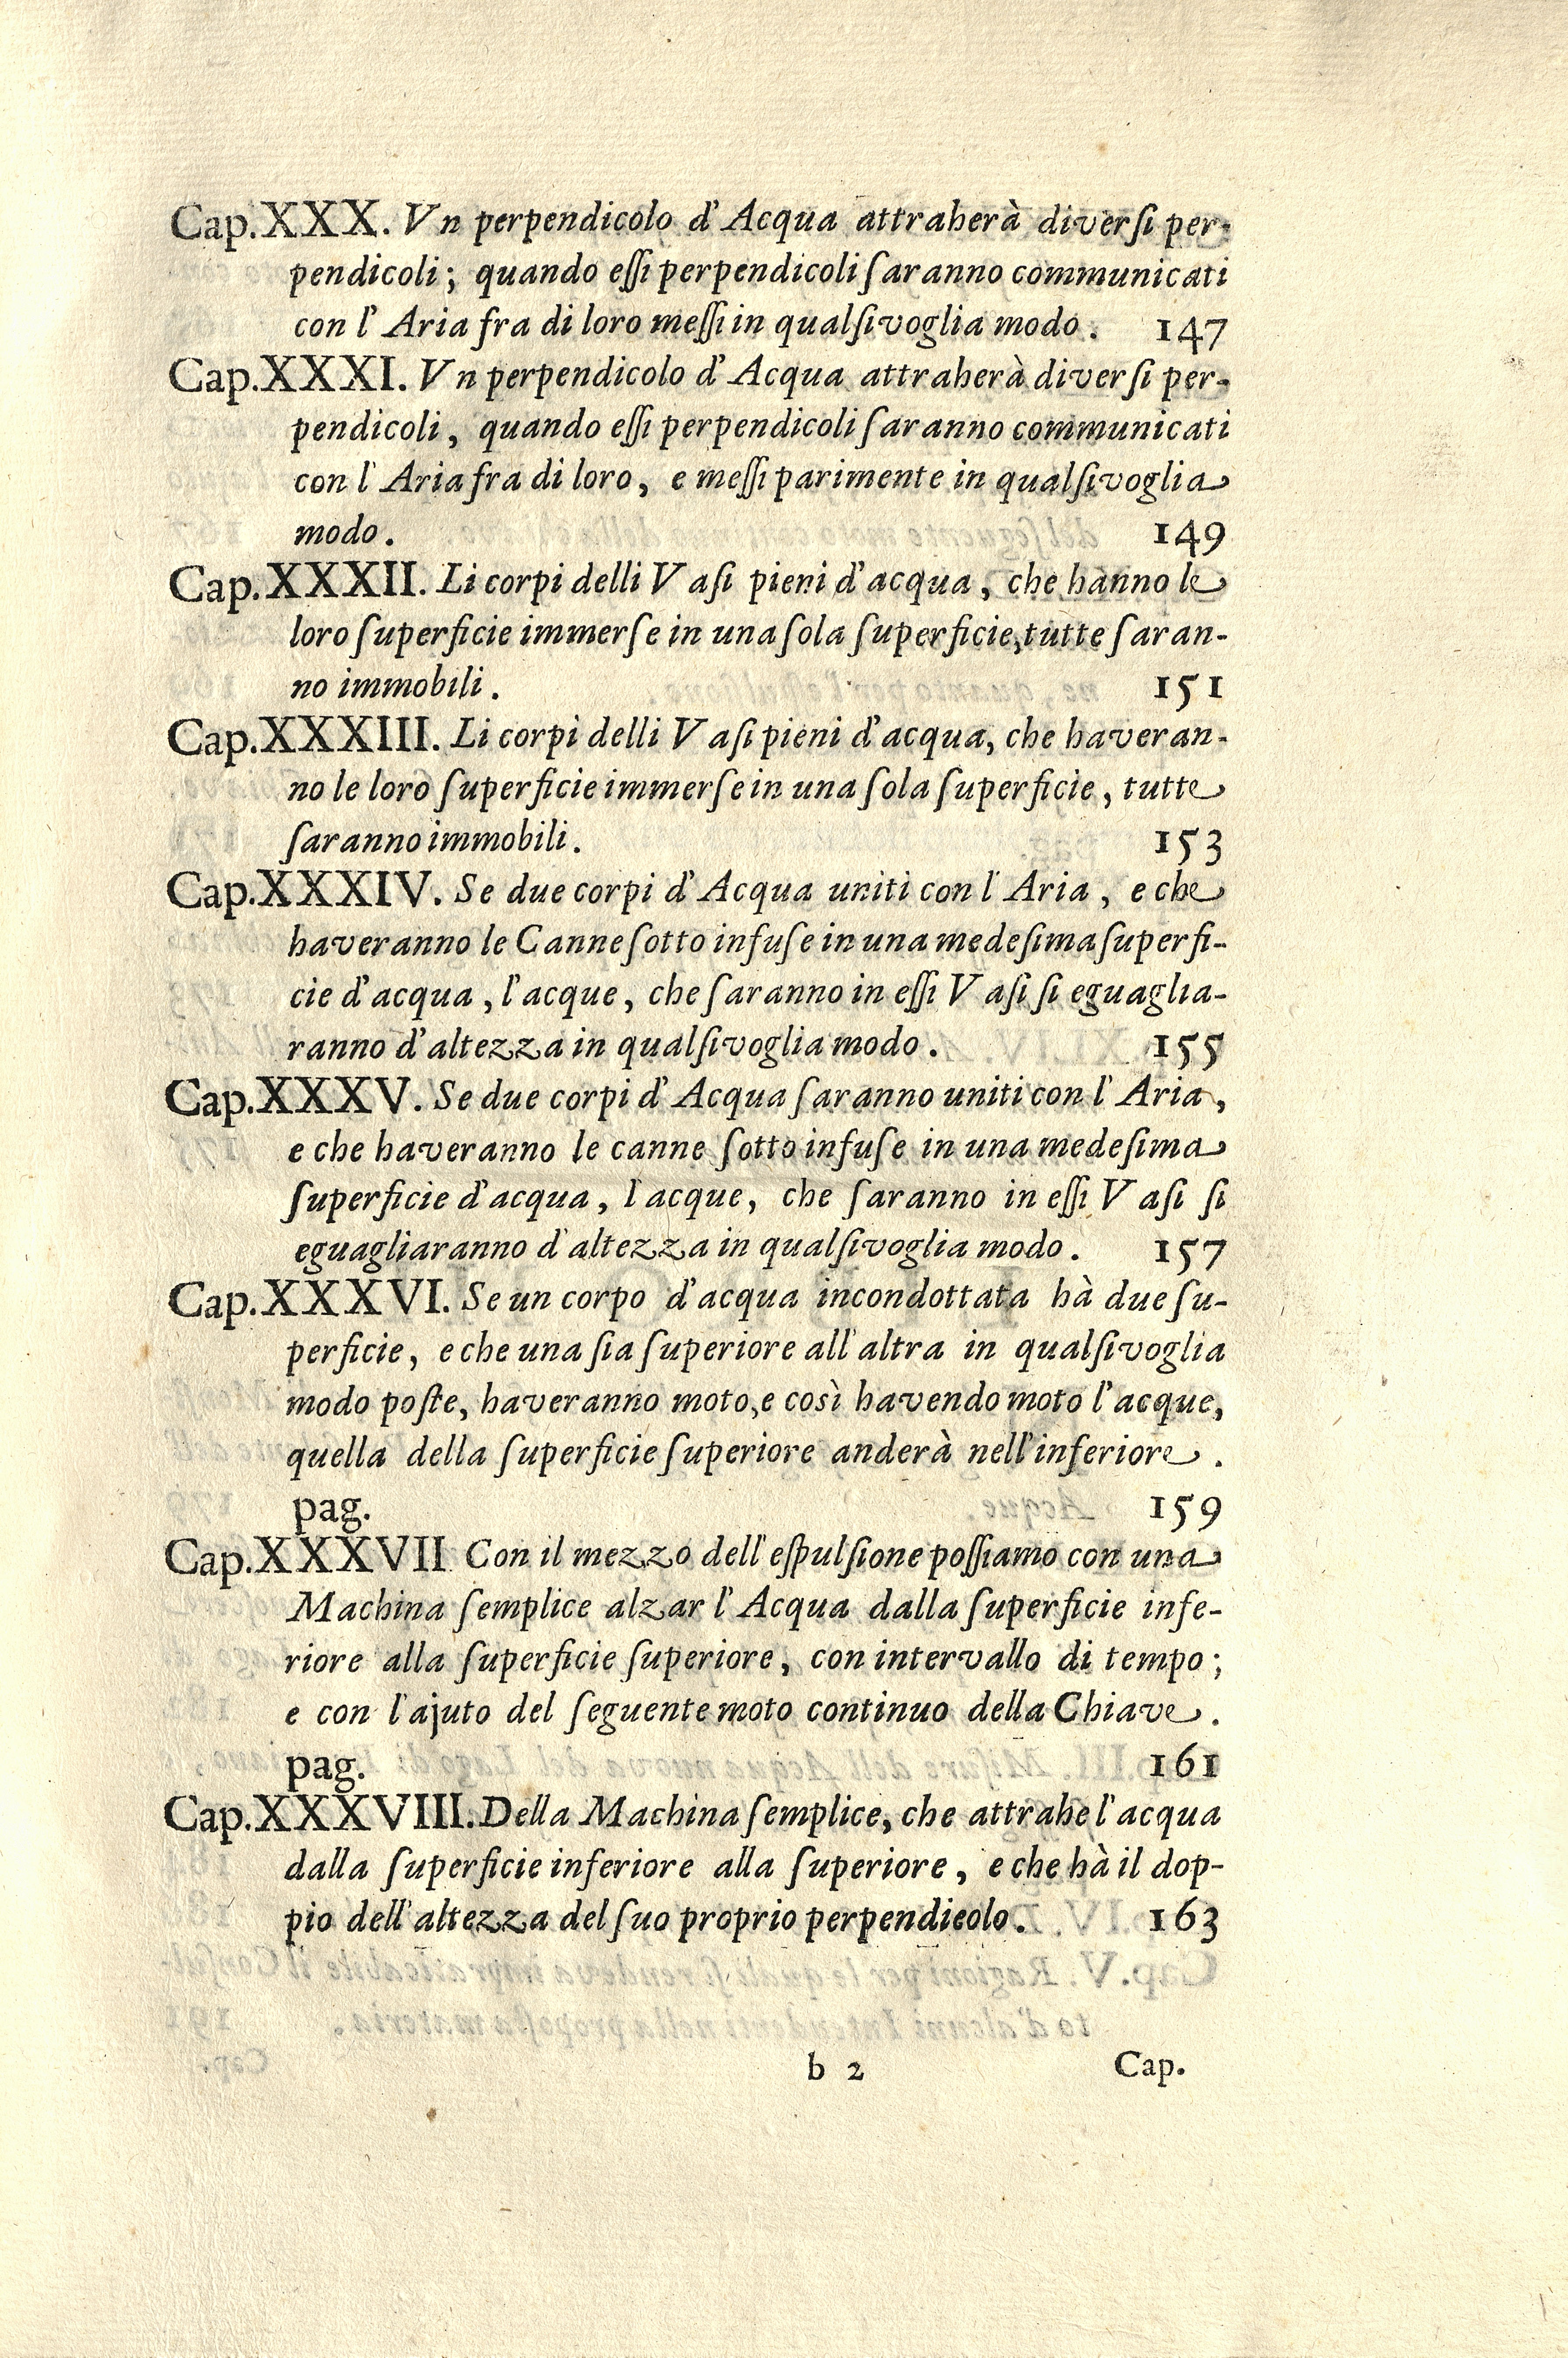 Cap.XXX. Vn perpendicolo d'Acqua attraherà diverſi per-
pendicoli; quando eſſi perpendicoli ſaranno communicati
con l'Aria fra di loro meſſi in qualſivoglia modo. 147
Cap.XXXI. Vn perpendicolo d'Acqua attraherà diverſi per-
pendicoli, quando eſſi perpendicoli ſaranno communicati
con l'Aria fra di loro, e meſſi parimente in qualſivoglia
modo. 149
Cap.XXXII. Li corpi delli Vaſi pieni d'acqua, che hanno le
loro ſuperficie immerſe in una ſola ſuperficie, tutte ſaran-
no immobili. 151
Cap.XXXIII. Li corpi delli Vaſi pieni d'acqua, che haveran-
no le loro ſuperficie immerſe in una ſola ſuperficie, tutte
ſaranno immobili. 153
Cap.XXXIV. Se due corpi d'Acqua uniti con l'Aria, e che
haveranno le Canne ſotto infuſe in una medeſima ſuperfi-
cie d'acqua, l'acque, che ſaranno in eſſi Vaſi ſi eguaglia-
ranno d'altezza in qualſivoglia modo. 155
Cap.XXXV. Se due corpi d'Acqua ſaranno uniti con l'Aria,
e che haveranno le canne ſotto infuſe in una medeſima
ſuperficie d'acqua, l'acque, che ſaranno in eſſi Vaſi ſi
eguagliaranno d'altezza in qualſivoglia modo. 157
Cap.XXXVI. Se un corpo d'acqua incondottata hà due ſu-
perficie, e che una ſia ſuperiore all'altra in qualſivoglia
modo poſte, haveranno moto, e così havendo moto l'acque,
quella della ſuperficie ſuperiore anderà nell'inferiore.
pag. 159
Cap.XXXVII Con il mezzo dell'eſpulſione poſſiamo con una
Machina ſemplice alzar l'Acqua dalla ſuperficie infe-
riore alla ſuperficie ſuperiore, con intervallo di tempo;
e con l'ajuto del ſeguente moto continuo della Chiave.
pag. 161
Cap.XXXVIII. Della Machina ſemplice, che attrahe l'acqua
dalla ſuperficie inferiore alla ſuperiore, e che hà il dop-
pio dell'altezza del ſuo proprio perpendieolo. 163
b 2 Cap.